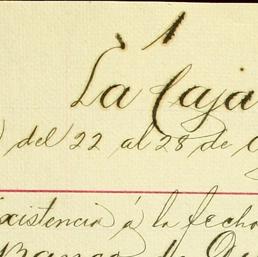 1
La Caja
del 22 al 28 de
existencia á la fecha
Banco de